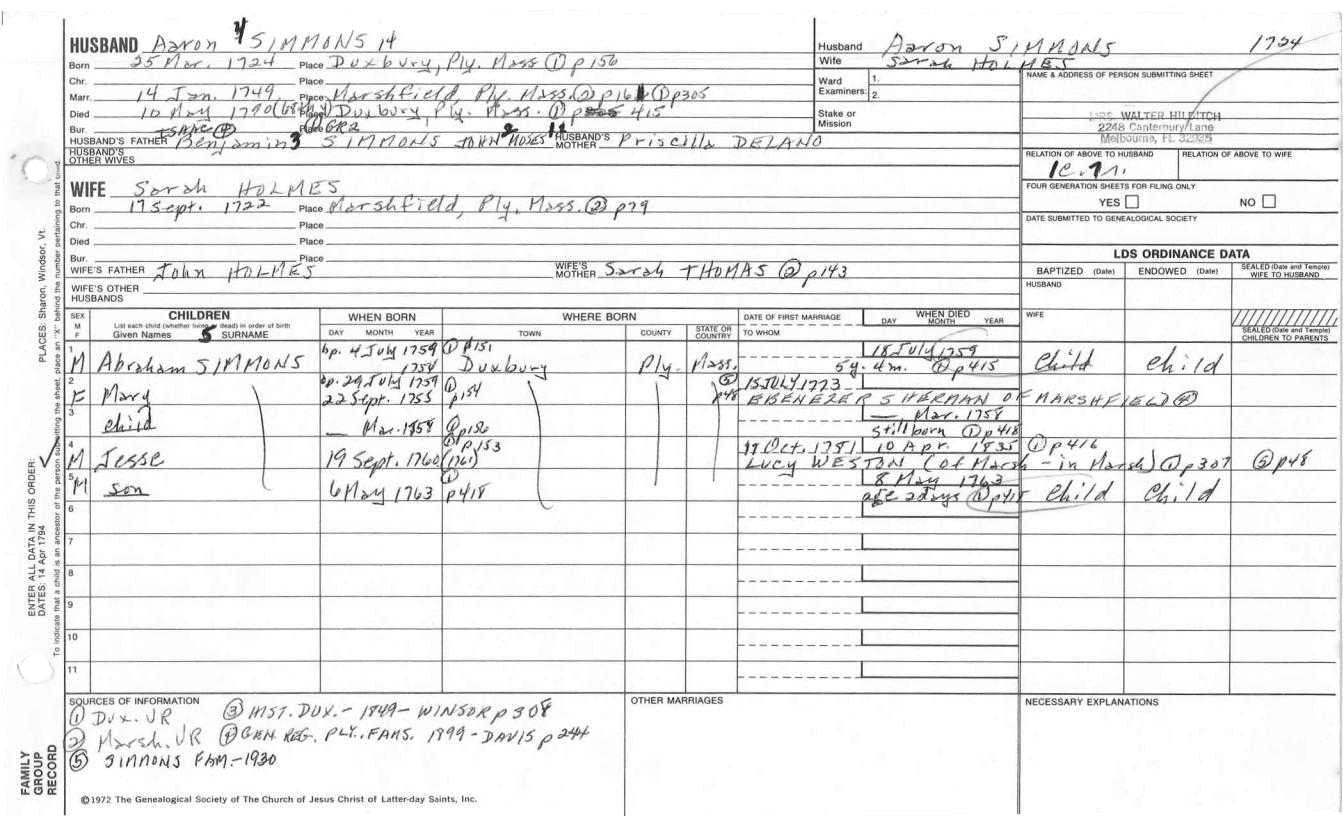 HUSBAND Aaron 4 SIMMONS 14
Born 25 Mar. 1724 Place Duxbury, Ply. Mass ① p156
Chr. Place
Marr. 14 Jan. 1749 Place Marshfield, Ply. Mass. ② p16 ① p305
Died 10 May 1790 Place Duxbury, Ply. Mass. ① p 415
Bur. Place GR2
ISAAC ④
HUSBAND'S FATHER Benjamin 3 SIMMONS JOHN 2 MOSES HUSBAND'S MOTHER Priscilla DELANO
HUSBAND'S OTHER WIVES
WIFE Sarah HOLMES
Born 17 Sept. 1722 Place Marshfield, Ply. Mass. ② p79
Chr. Place
Died Place
Bur. Place
WIFE'S FATHER John HOLMES WIFE'S MOTHER Sarah THOMAS ② p143
WIFE'S OTHER HUSBANDS
Husband Aaron SIMMONS 1724
Wife Sarah HOLMES
Ward Examiners: 1.
2.
Stake or Mission
NAME & ADDRESS OF PERSON SUBMITTING SHEET
MRS. WALTER HILDITCH
2248 Canterbury Lane
Melbourne, FL 32935
RELATION OF ABOVE TO HUSBAND RELATION OF ABOVE TO WIFE
FOUR GENERATION SHEETS FOR FILING ONLY
YES NO
DATE SUBMITTED TO GENEALOGICAL SOCIETY
LDS ORDINANCE DATA
BAPTIZED (Date) ENDOWED (Date) SEALED (Date and Temple) WIFE TO HUSBAND
HUSBAND
WIFE
SEALED (Date and Temple) CHILDREN TO PARENTS
SEX M F CHILDREN WHEN BORN WHERE BORN DATE OF FIRST MARRIAGE WHEN DIED
List each child (whether living or dead) in order of birth
Given Names 5 SURNAME DAY MONTH YEAR TOWN COUNTY STATE OR COUNTRY TO WHOM DAY MONTH YEAR
1 bp. 4 July 1759 ① p151 18 July 1759
M Abraham SIMMONS 1754 Duxbury Ply. Mass. 5y. 4m. ① p415 Child Child
2 bp. 29 July 1759 ① p154 ⑤ p48 15 JULY 1773
F Mary 22 Sept. 1755 EBENEZER SHERMAN OF MARSHFIELD ④
3 — Mar. 1758
child — Mar. 1758 ① p156 Stillborn ① p418
4 ① p153 17 Oct. 1781 10 Apr. 1835 ① p416
M Jesse 19 Sept. 1760 (1761) LUCY WESTON (of Marsh - in Marsh) ① p307 ⑤ p48
5 8 May 1763
M son 6 May 1763 p418 age 2 days ① p418 Child Child
6
7
8
9
10
11
SOURCES OF INFORMATION
① Dux. VR ③ HIST. DUX. - 1849 - WINSOR p 308
② Marsh. VR ④ GEN. REG. PLY. FAMS. 1899 - DAVIS p 244
⑤ SIMMONS FAM. - 1930
OTHER MARRIAGES
NECESSARY EXPLANATIONS
©1972 The Genealogical Society of The Church of Jesus Christ of Latter-day Saints, Inc.
FAMILY GROUP RECORD
ENTER ALL DATA IN THIS ORDER:
DATES: 14 Apr 1794 PLACES: Sharon, Windsor, Vt.
To indicate that a child is an ancestor of the person submitting the sheet, place an "X" behind the number pertaining to that child.